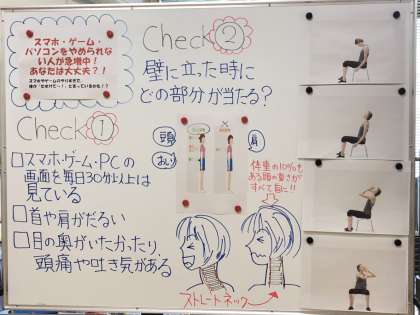 スマホ・ゲーム・
パソコンをやめられな
い人が急増中!
あなたは大丈夫?!
Check①
□スマホ・ゲーム・PCの
画面を毎日30分以上は
見ている
□首や肩がだるい
□目の奥がいたかったり
頭痛や吐き気がある
Check②
壁に立った時に
どの部分が当たる?
頭
おしり
肩
体重の10%も
ある頭の重さが
すべて首に!!
ストレートネック